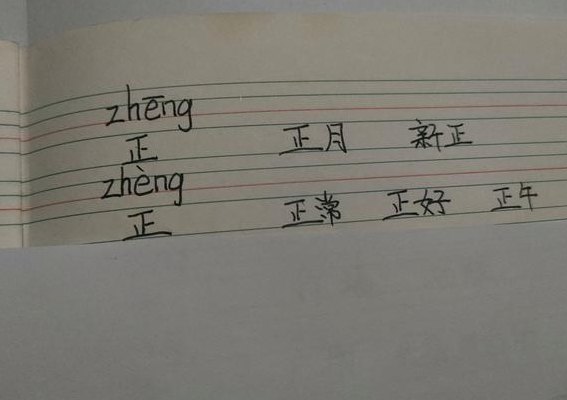 zhēng
正 正月 新正
zhèng
正 正常 正好 正午